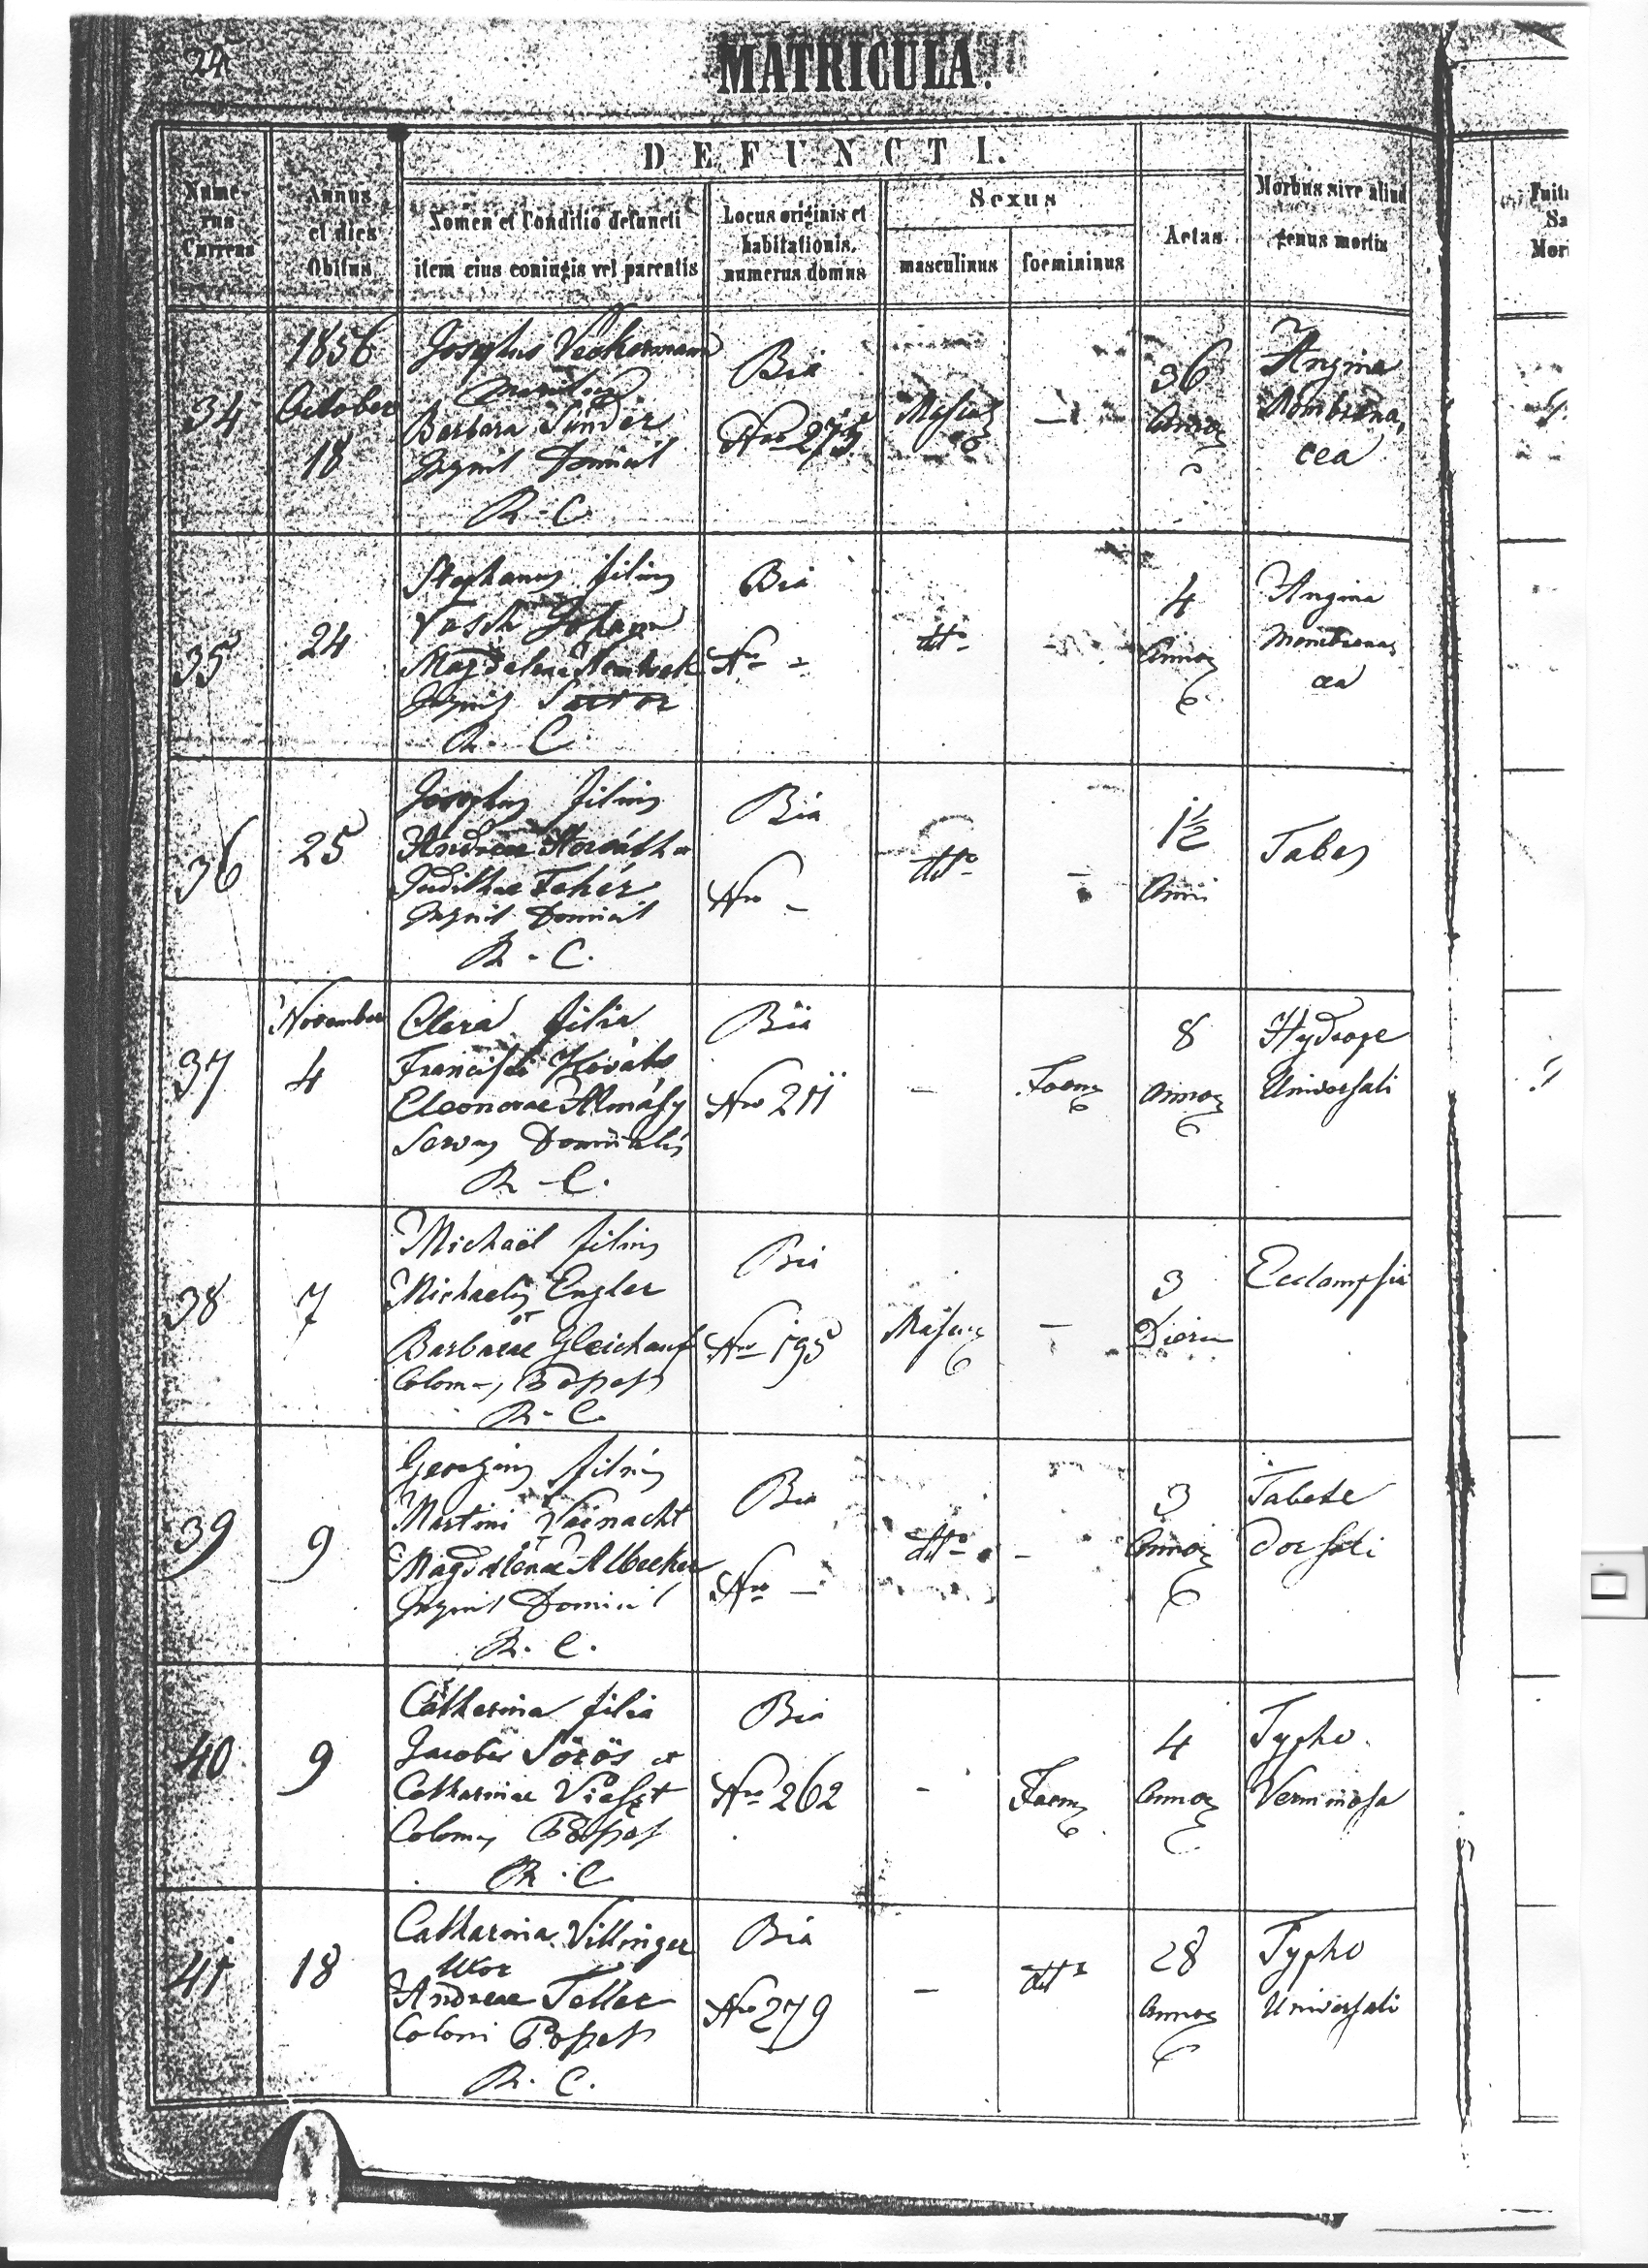 24
MATRICULA.
DEFUNCTI.
Nume-
rus
Currens
Annus
et dies
Obitus
Nomen et Conditio defuncti
item eius coniugis vel parentis
Locus originis et
habitationis,
numerus domus
Sexus
masculinus
foemininus
Aetas
Morbus sive aliud
genus mortis
Fuit
Sa
Mor
34
1856
October
18
Josephus Veckermann
maritus
Barbara Sinder
Inquil Domicil
R. C.
Bia
Nro 275
Mascul
-
36
Annor
Angina
Membrana,
cea
35
24
Stephanus filius
Vasch Johann
Magdalena
Inquil Sartor
R. C.
Bia
Nro -
dtto
-
4
Annor
Angina
Membrana,
cea
36
25
Josephus filius
Andreae Horváth et
Judithae Fehér
Inquil Domicil
R. C.
Bia
Nro -
dtto
-
1½
Anni
Tabes
37
November
4
Clara filia
Francisci Kováts
Eleonorae Almásy
Servus Dominalis
R. C.
Bia
Nro 211
-
Foem
8
Annor
Hydrope
Universali
38
7
Michaël filius
Michaelis Engler
et
Barbarae Gleichauf
Colonus Possess
R. C.
Bia
Nro 195
Mascul
-
3
Dierum
Ecclampsia
39
9
Georgius filius
Martini Vainacht
Magdalenae Albecker
Inquil Domicil
R. C.
Bia
Nro -
dtto
-
3
Annor
Tabete
dorsali
40
9
Catharina filia
Jacobi Sörös et
Catharinae Viaszt
Colonus Possess
R. C.
Bia
Nro 262
-
Foem
4
Annor
Typho
Verminosa
41
18
Catharina Villinger
Uxor
Andreae Teller
Coloni Possess
R. C.
Bia
Nro 279
-
dtto
28
Annor
Typho
Universali